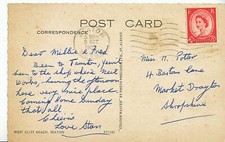 POST CARD
CORRESPONDENCE
Dear Millie & Fred
Been to Taunton, just
been to the shop where Nell
Works, having the afternoon
here very nice place
Coming home Sunday
that's all
Cheerio
Love
Miss M. Potter
4 Barton Lane
Market Drayton
Shropshire
WEST CLIFF BEACH, SEATON